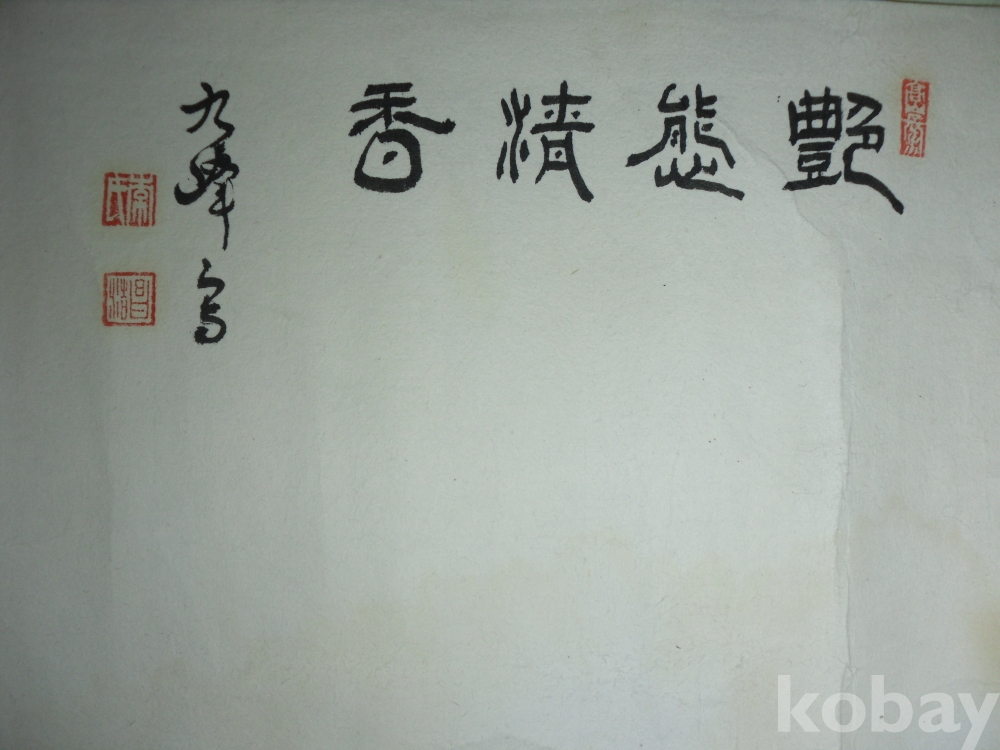 艶態清香
九峯寫
kobay